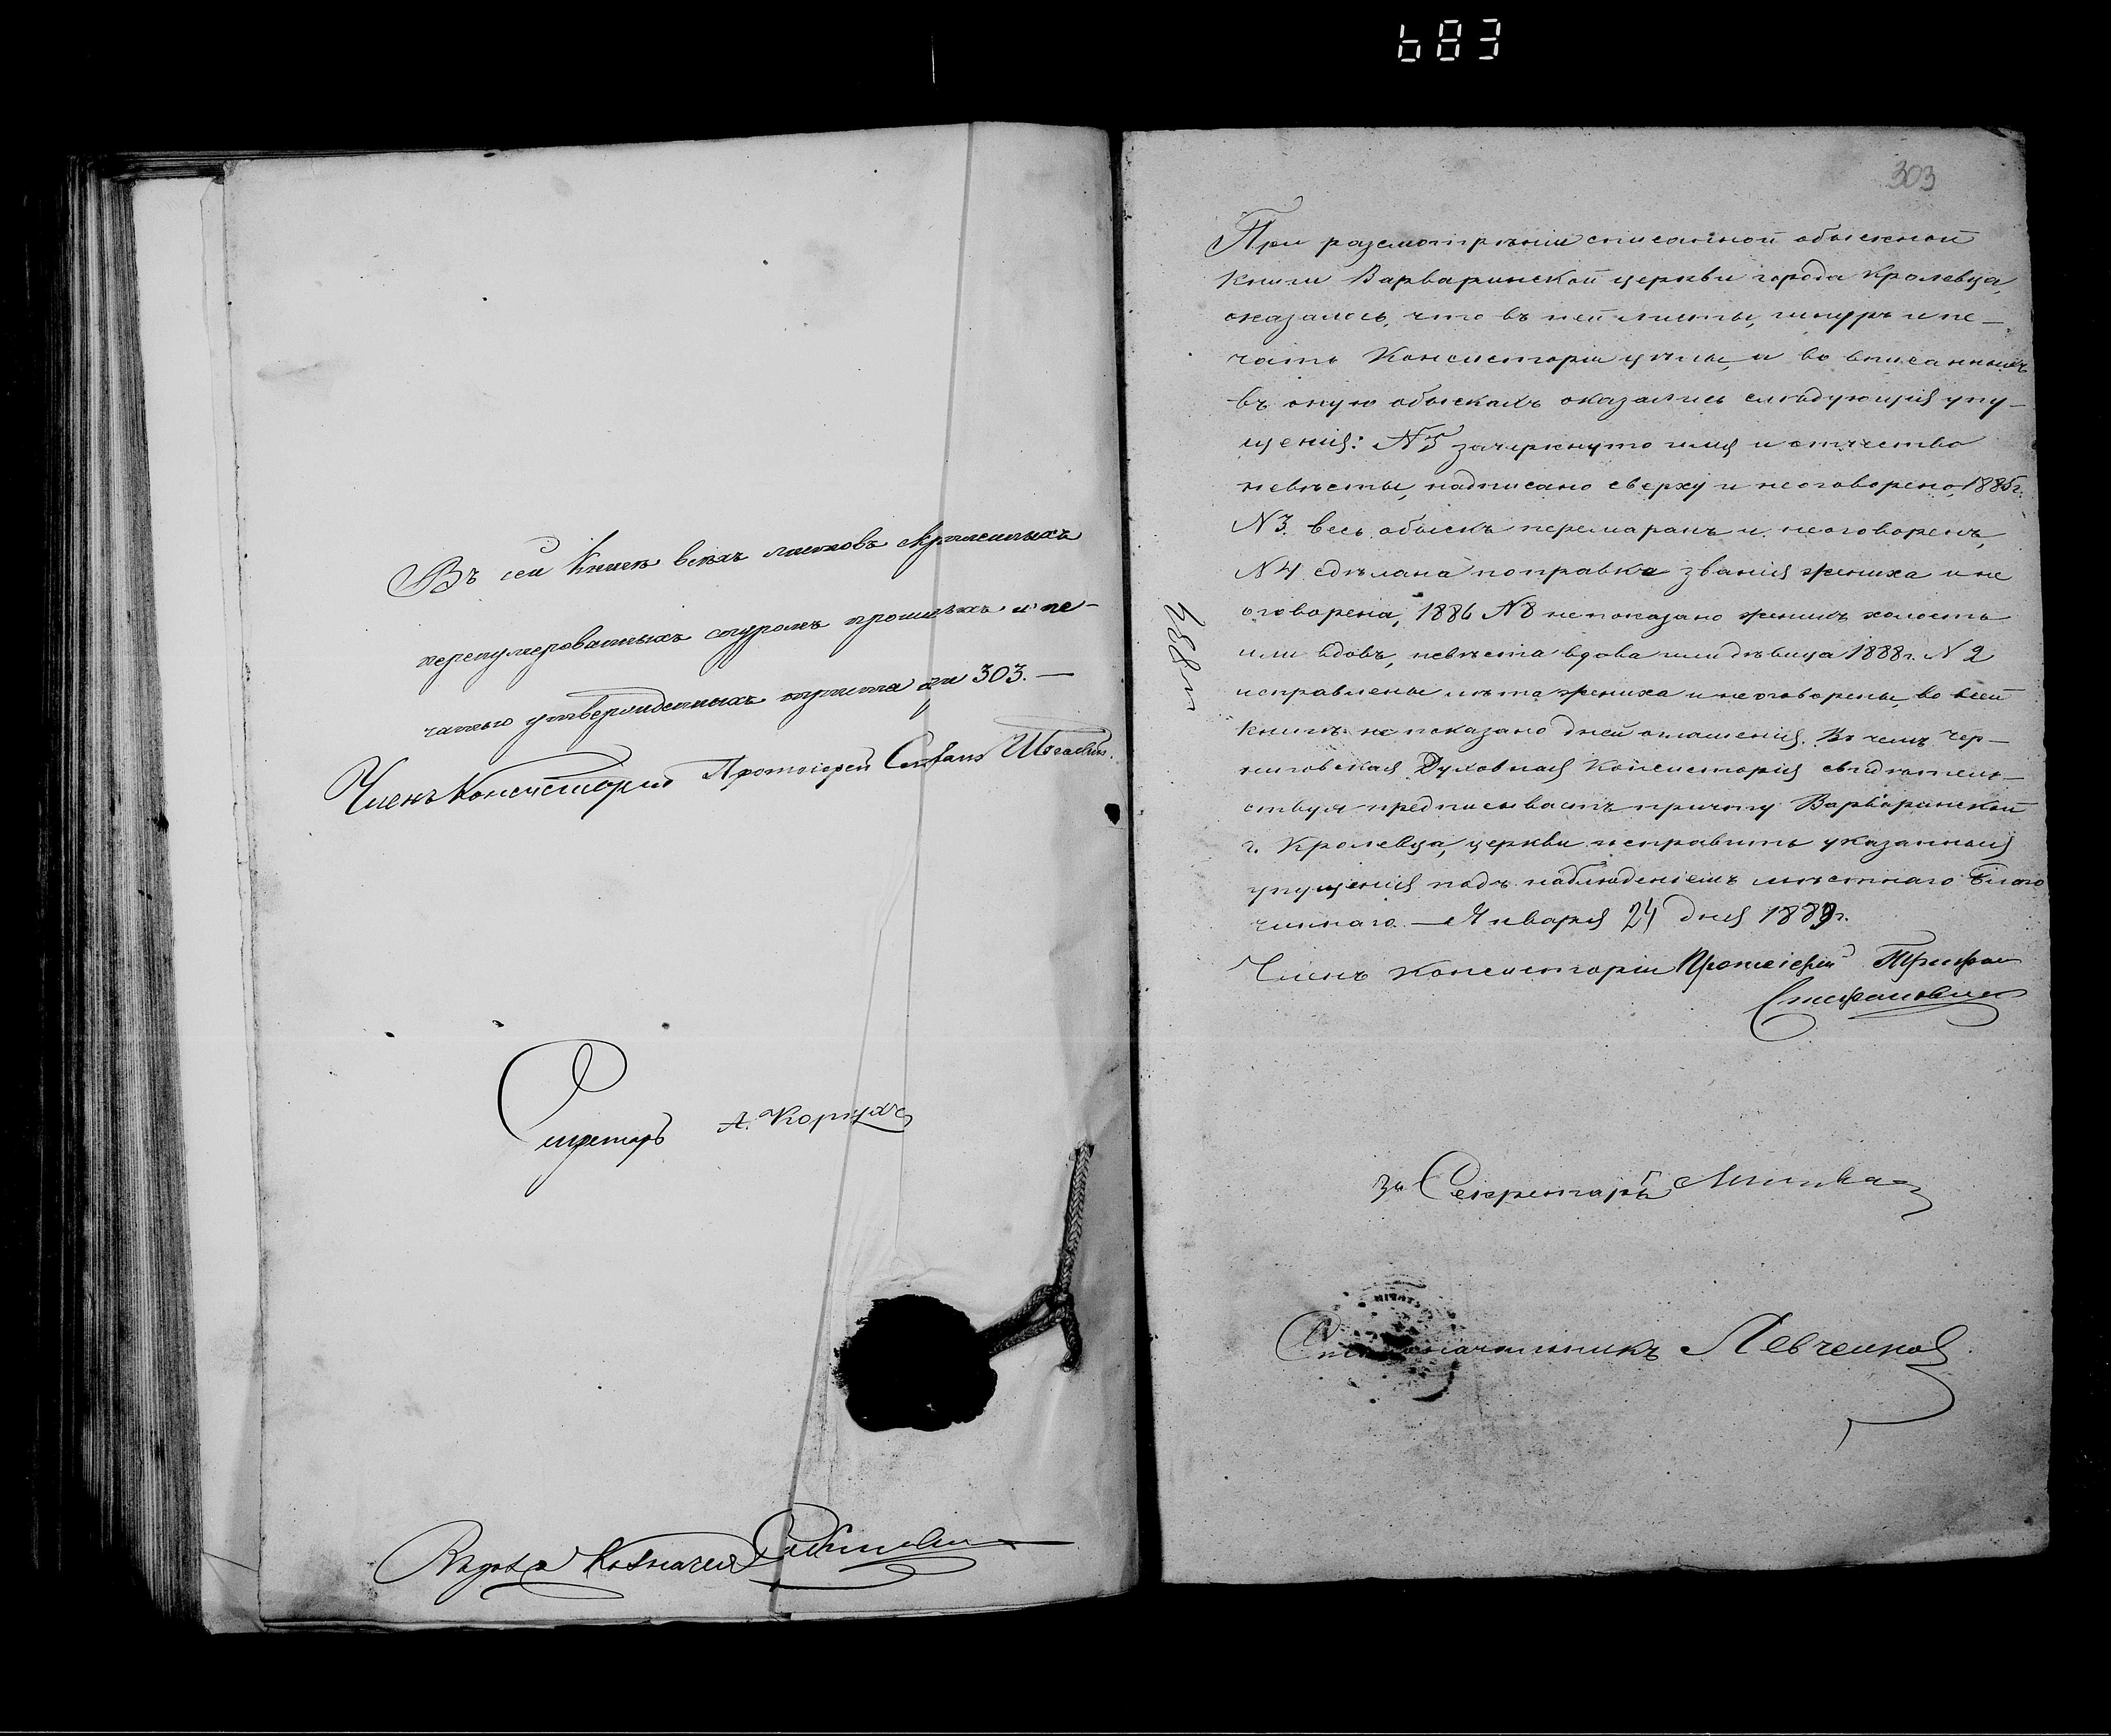 683
Въ сей Книгѣ всѣхъ листовъ скрѣпленныхъ
перенумерованныхъ шнуромъ прошитыхъ и пе-
чатью утвержденныхъ триста три 303. —
Членъ Консисторіи Протоіерей Стефанъ
Секретарь А. Корнухъ
Казначея
303
При разсмотрѣніи списанной обыскной
книги Варваринской церкви города Кролевца,
оказалось, что въ ней листы, шнуръ и пе-
чать Консисторіи цѣлы, и во вписанныхъ
въ оную обыскахъ оказались слѣдующія упу-
щенія: №5 зачеркнуто имя и отчество
невѣсты, надписано сверху и неоговорено, 1885 г.
№3. весь обыскъ перемаранъ и неоговоренъ,
№4 сдѣлана поправка званія жениха и не
оговорена, 1886 №8 непоказано женихъ холостъ
или вдовъ, невѣста вдова или дѣвица 1888 г. №2
исправлены лѣта жениха и неоговорены, во всей
книгѣ не показано дней оглашенія. Въ чемъ Чер-
ниговская Духовная Консисторія свидѣтель-
ствуя предписываетъ причту Варваринской
г. Кролевца, церкви исправить указанныя
упущенія подъ наблюденіемъ мѣстнаго Благо
чиннаго. — Января 24 дня 1889 г.
Членъ Консисторіи Протоіерей Трифонъ
Стефановскій
За Секретаря
Столоначальникъ Левченко